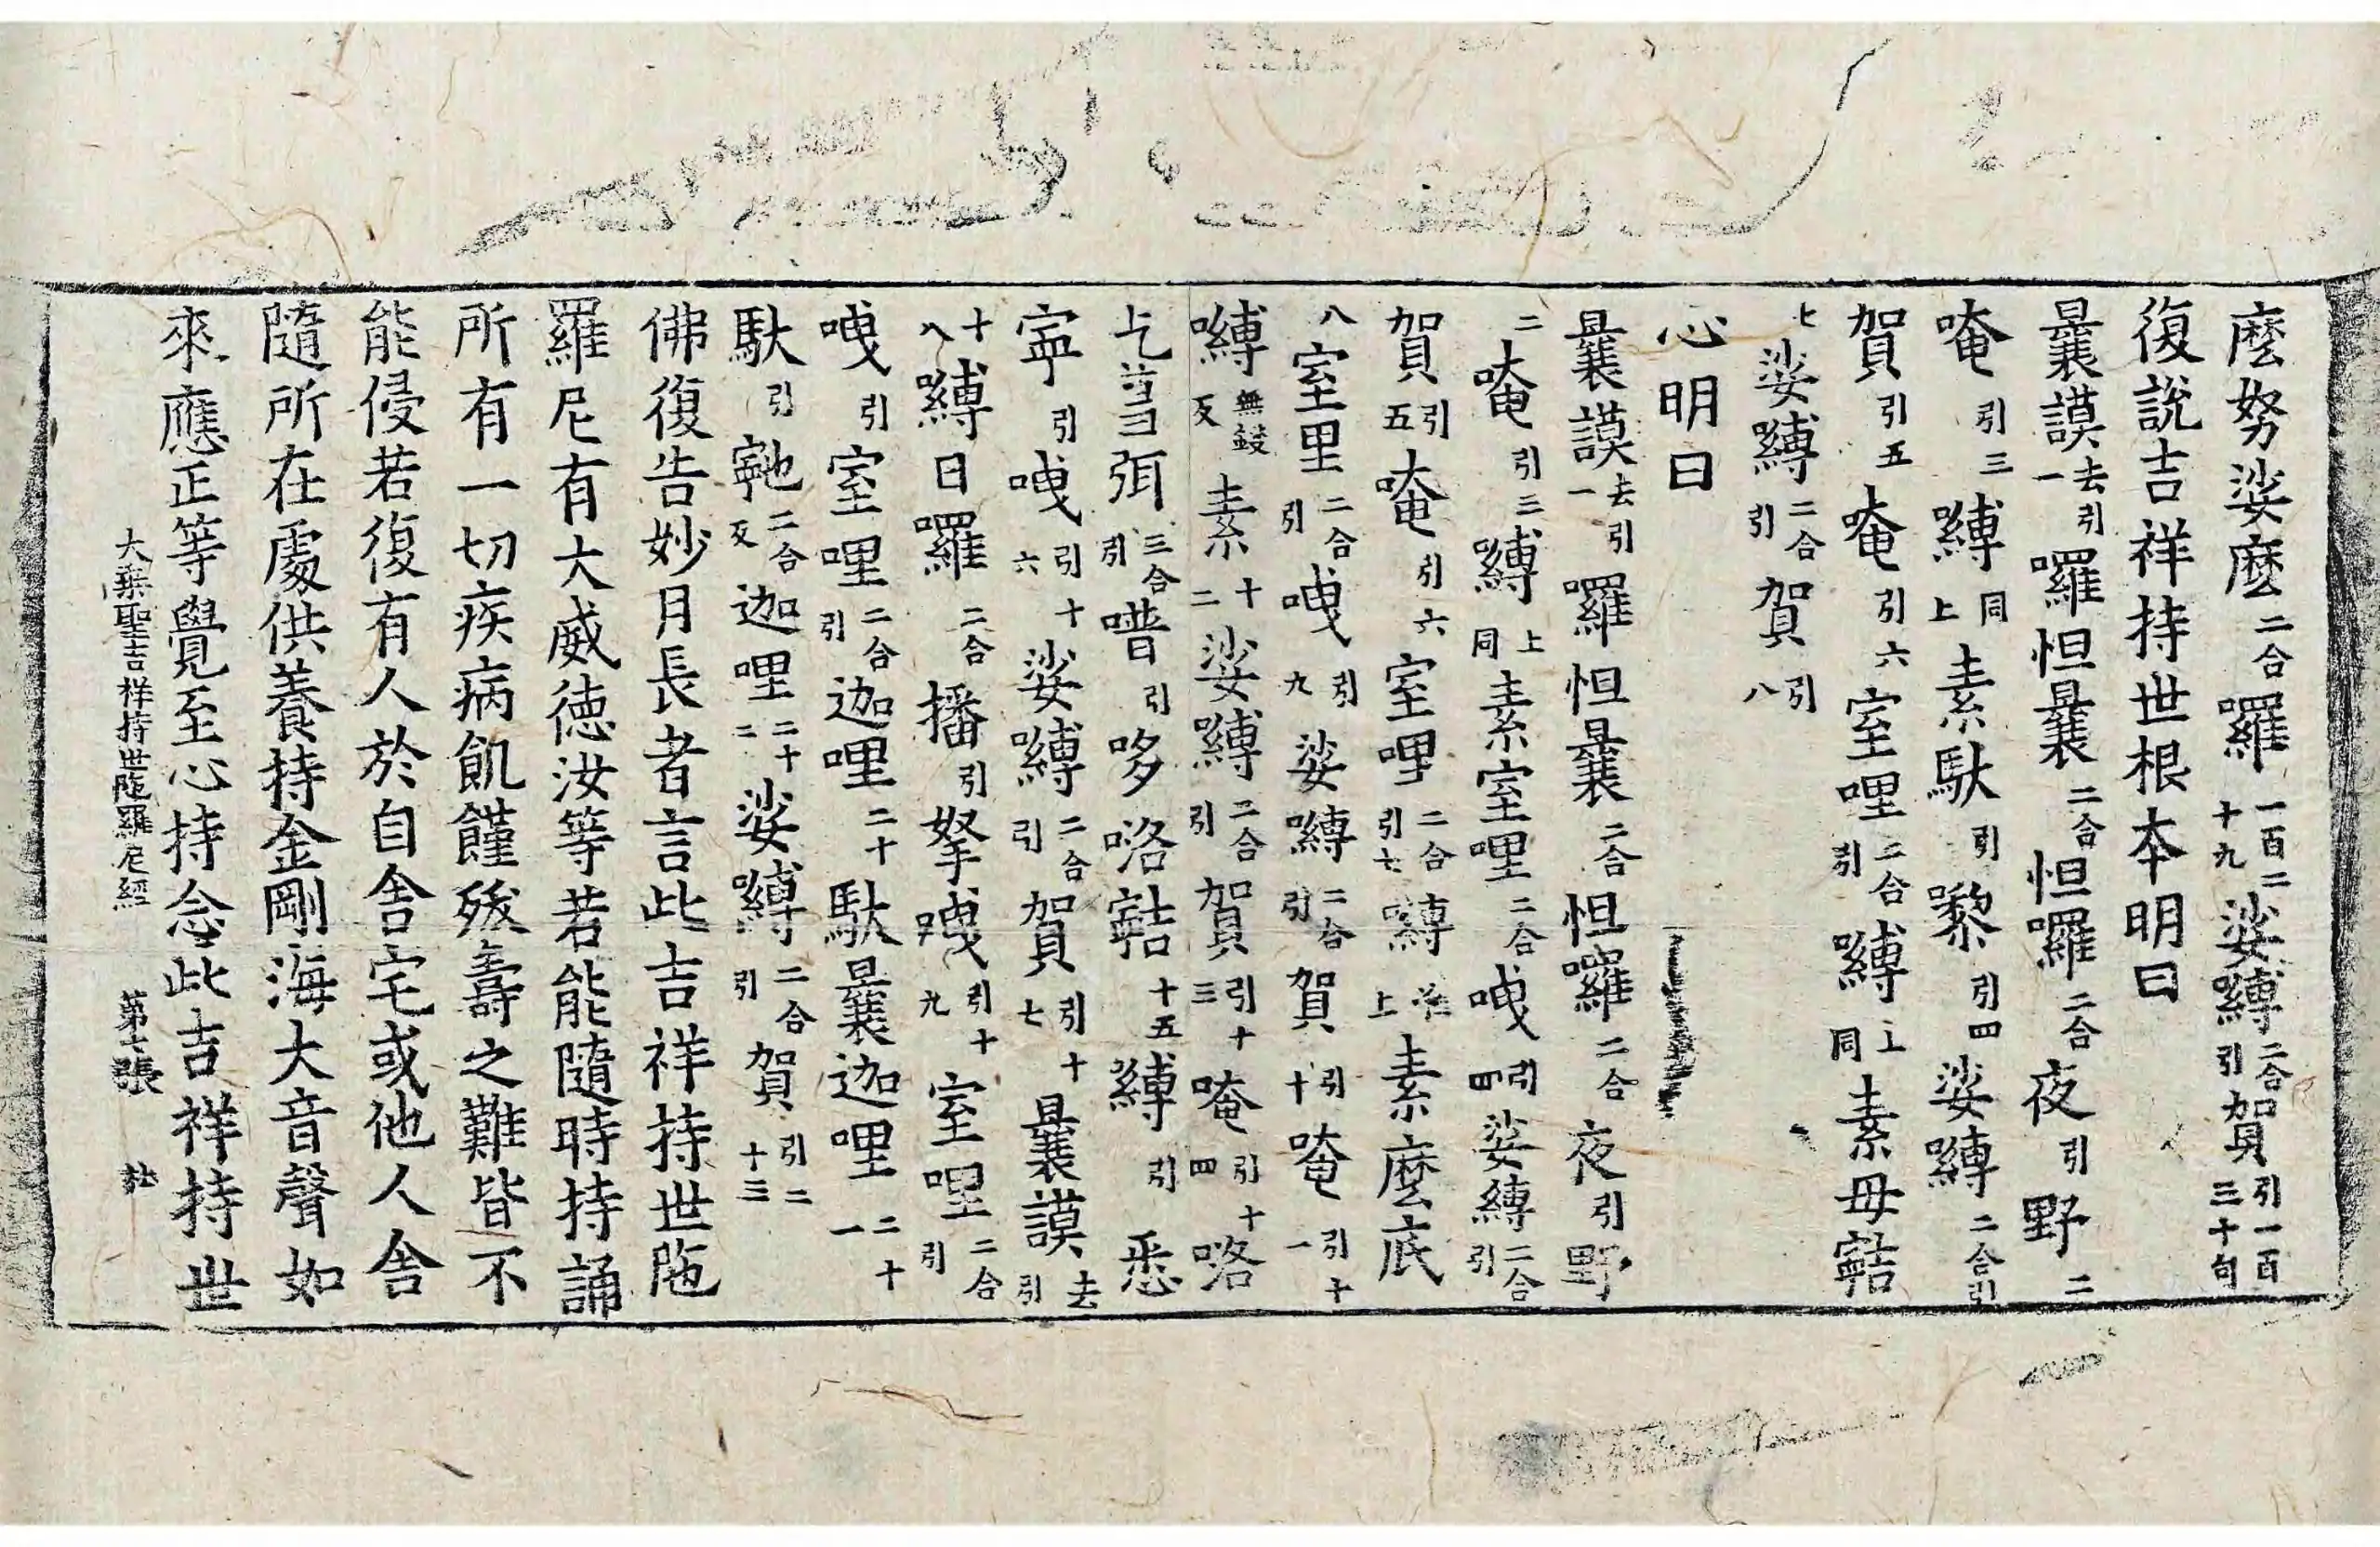 麽努娑麽二合囉一百二十九娑嚩二合引賀引一百三十句
復說吉祥持世根本明曰
曩謨去引一囉怛曩二合怛囉二合夜引野二
唵引三嚩同上素馱引嚟引四娑嚩二合引
賀引五唵引六室哩二合引嚩上同素母䭿
七娑嚩二合引賀引八
心明曰
曩謨去引一囉怛曩二合怛囉二合夜引野
二唵引三嚩上同素室哩二合曳引四娑嚩二合引
賀引五唵引六室哩二合引七嚩上素麽底
八室里二合引曳引九娑嚩二合引賀引十唵引十一
嚩無鼓反素十二娑嚩二合引賀引十三唵引十四咯
乞弭三合引噆引哆咯十五嚩引悉
寧引曳引十六娑嚩二合引賀引十七曩謨去引
十八嚩日囉二合播引拏曳引十九室哩二合引
曳引室哩二合引迦哩二十馱曩迦哩二十一
馱引二合反迦哩二十二娑嚩二合引賀引二十三
佛復告妙月長者言此吉祥持世陁
羅尼有大威德汝等若能隨時持誦
所有一切疾病飢饉殀壽之難皆不
能侵若復有人於自舍宅或他人舍
隨所在處供養持金剛海大音聲如
來應正等覺至心持念此吉祥持世
大乘聖吉祥持世陁羅尼經 第七張